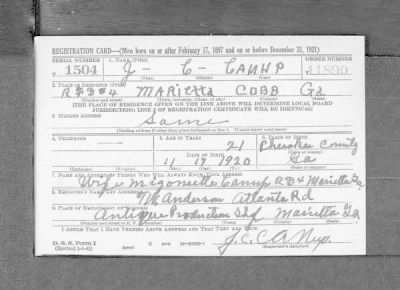 REGISTRATION CARD—(Men born on or after February 17, 1897 and on or before December 31, 1921)
SERIAL NUMBER 1. NAME (Print) ORDER NUMBER
T 1504 J - C - CAMP 11890
(First) (Middle) (Last)
2. PLACE OF RESIDENCE (Print)
Marietta COBB Ga
(Number and street) (Town, township, village, or city) (County) (State)
[THE PLACE OF RESIDENCE GIVEN ON THE LINE ABOVE WILL DETERMINE LOCAL BOARD
JURISDICTION; LINE 2 OF REGISTRATION CERTIFICATE WILL BE IDENTICAL]
3. MAILING ADDRESS
Same
[Mailing address if other than place indicated on line 2. If same insert word same]
4. TELEPHONE 5. AGE IN YEARS 6. PLACE OF BIRTH
21 Cherokee County
DATE OF BIRTH
11 17 1920 Ga
7. NAME AND ADDRESS OF PERSON WHO WILL ALWAYS KNOW YOUR ADDRESS
Wife Camp RD 4 Marietta Ga
8. EMPLOYER'S NAME AND ADDRESS
Anderson Atlanta Rd
9. PLACE OF EMPLOYMENT OR BUSINESS
Production Marietta Ga
I AFFIRM THAT I HAVE VERIFIED ABOVE ANSWERS AND THAT THEY ARE TRUE.
D. S. S. Form 1
J.C. Camp